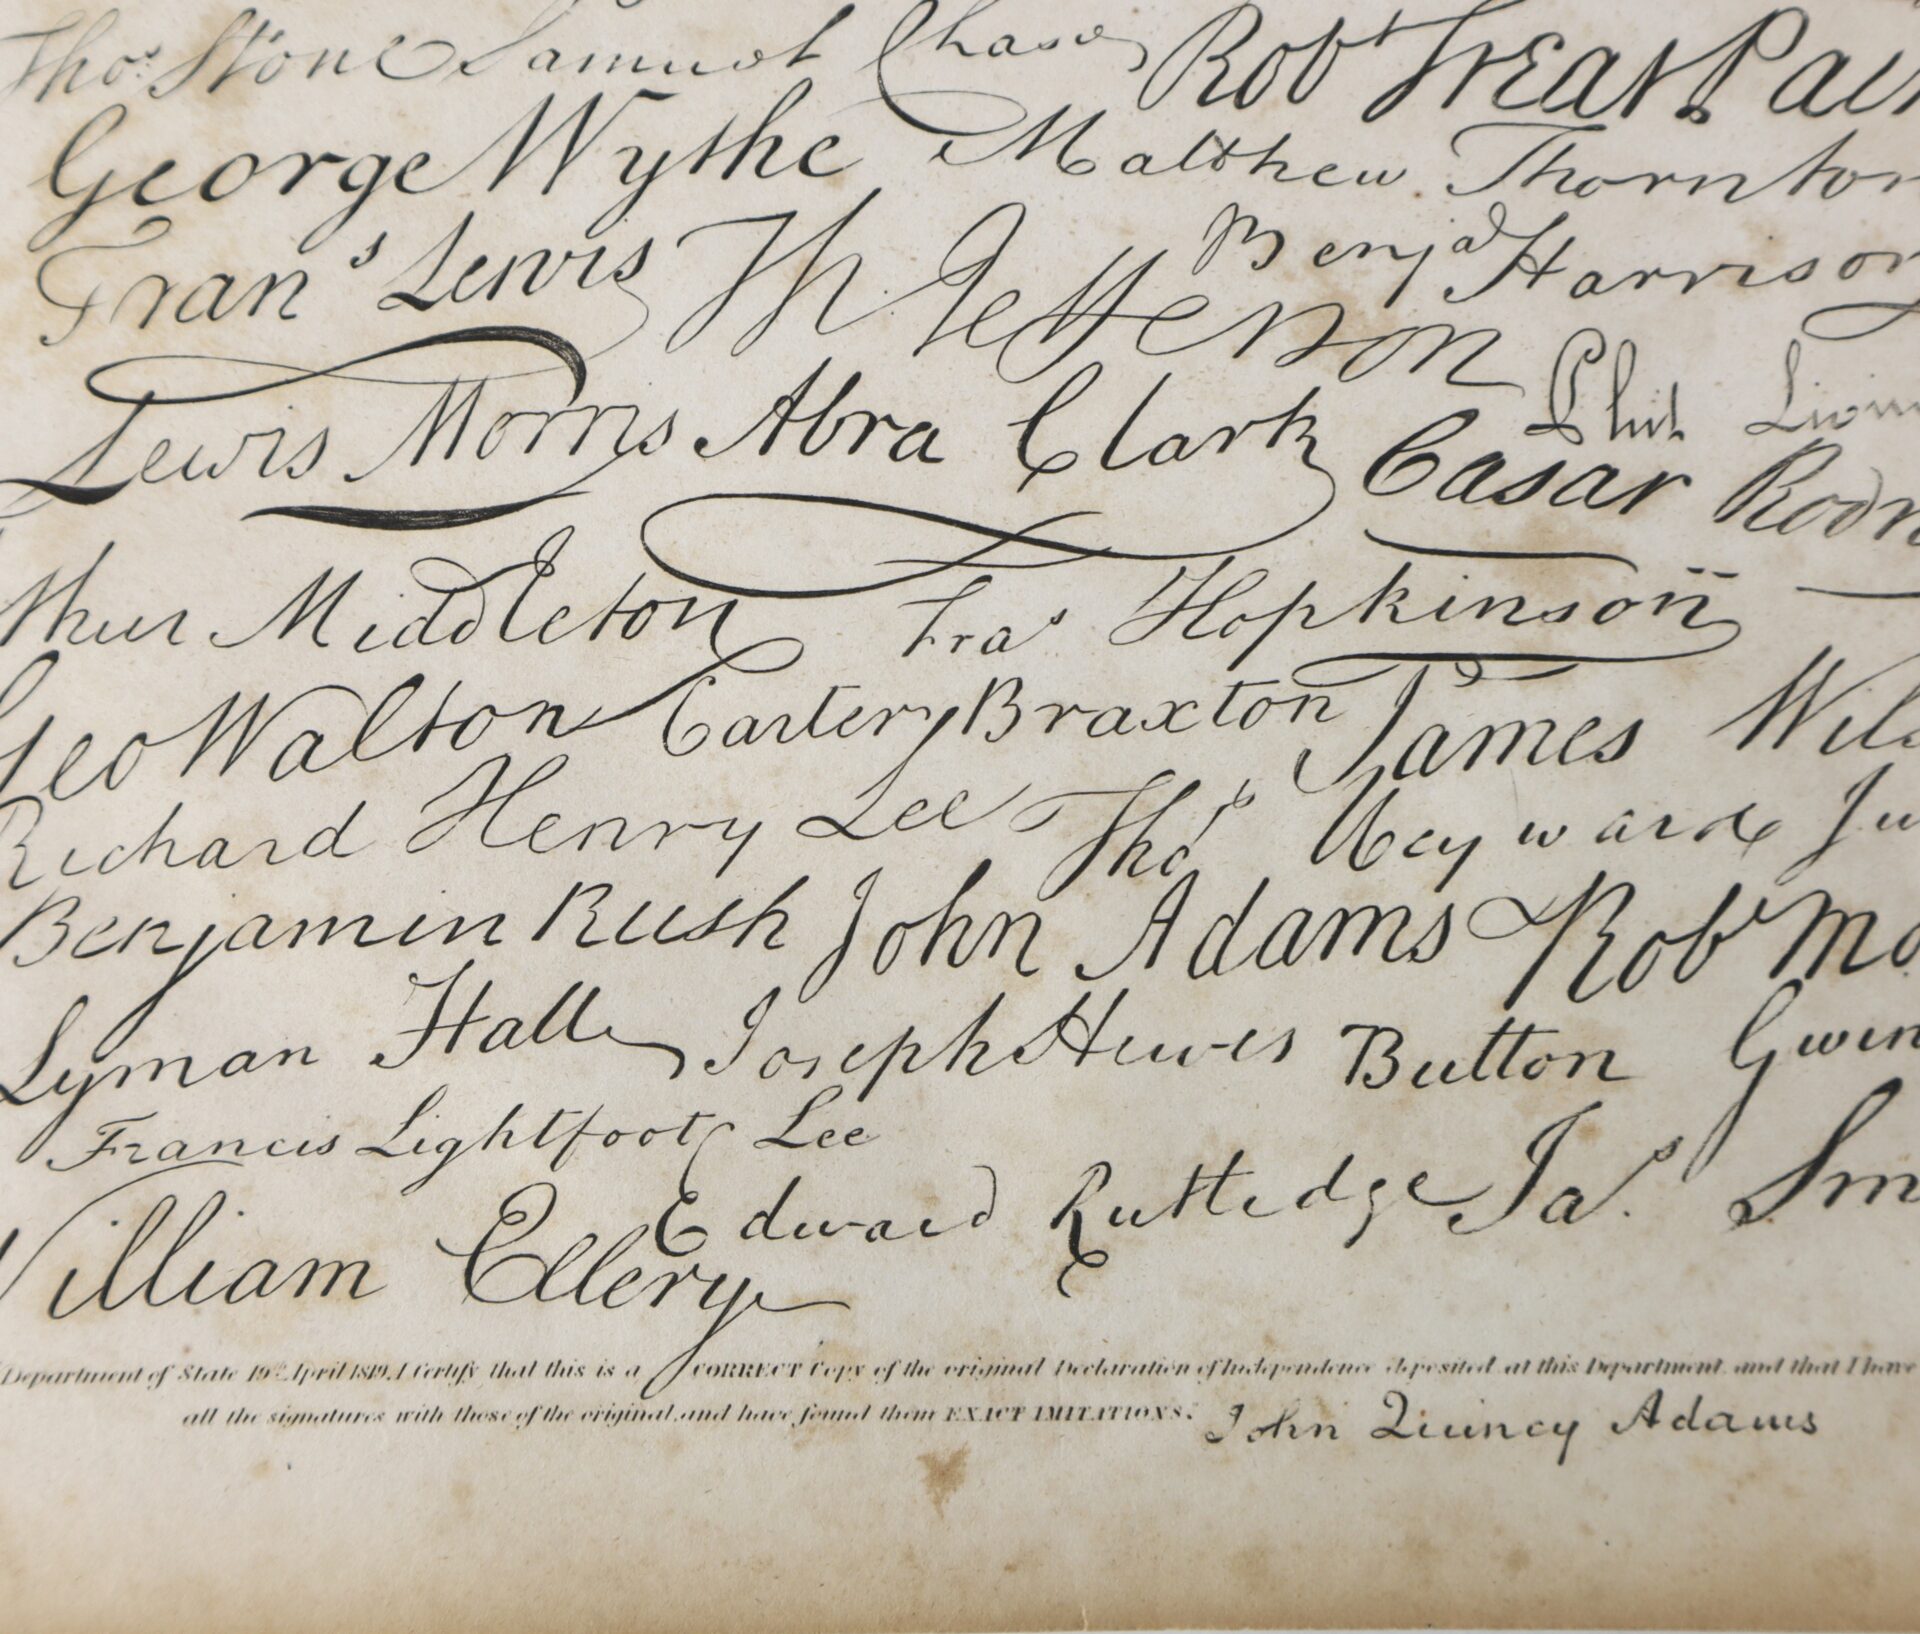 Thos. Stone Samuel Chase Robt Treat Pain
George Wythe Matthew Thornton
Frans Lewis Th Jefferson Benja Harrison
Lewis Morris Abra Clark Phil. Livin
Casar Rodn
thur Middleton Fras Hopkinson
Geo Walton Carter Braxton James Wils
Richard Henry Lee Thos Heyward Ju
Benjamin Rush John Adams Robt Mo
Lyman Hall Joseph Hewes Button Gwin
Francis Lightfoot Lee
Edward Rutledge Jas. Sm
William Ellery
Department of State 19th April 1819. I Certify, that this is a CORRECT Copy of the original Declaration of Independence deposited at this Department, and that I have
all the signatures with those of the original, and have found them EXACT IMITATIONS. John Quincy Adams